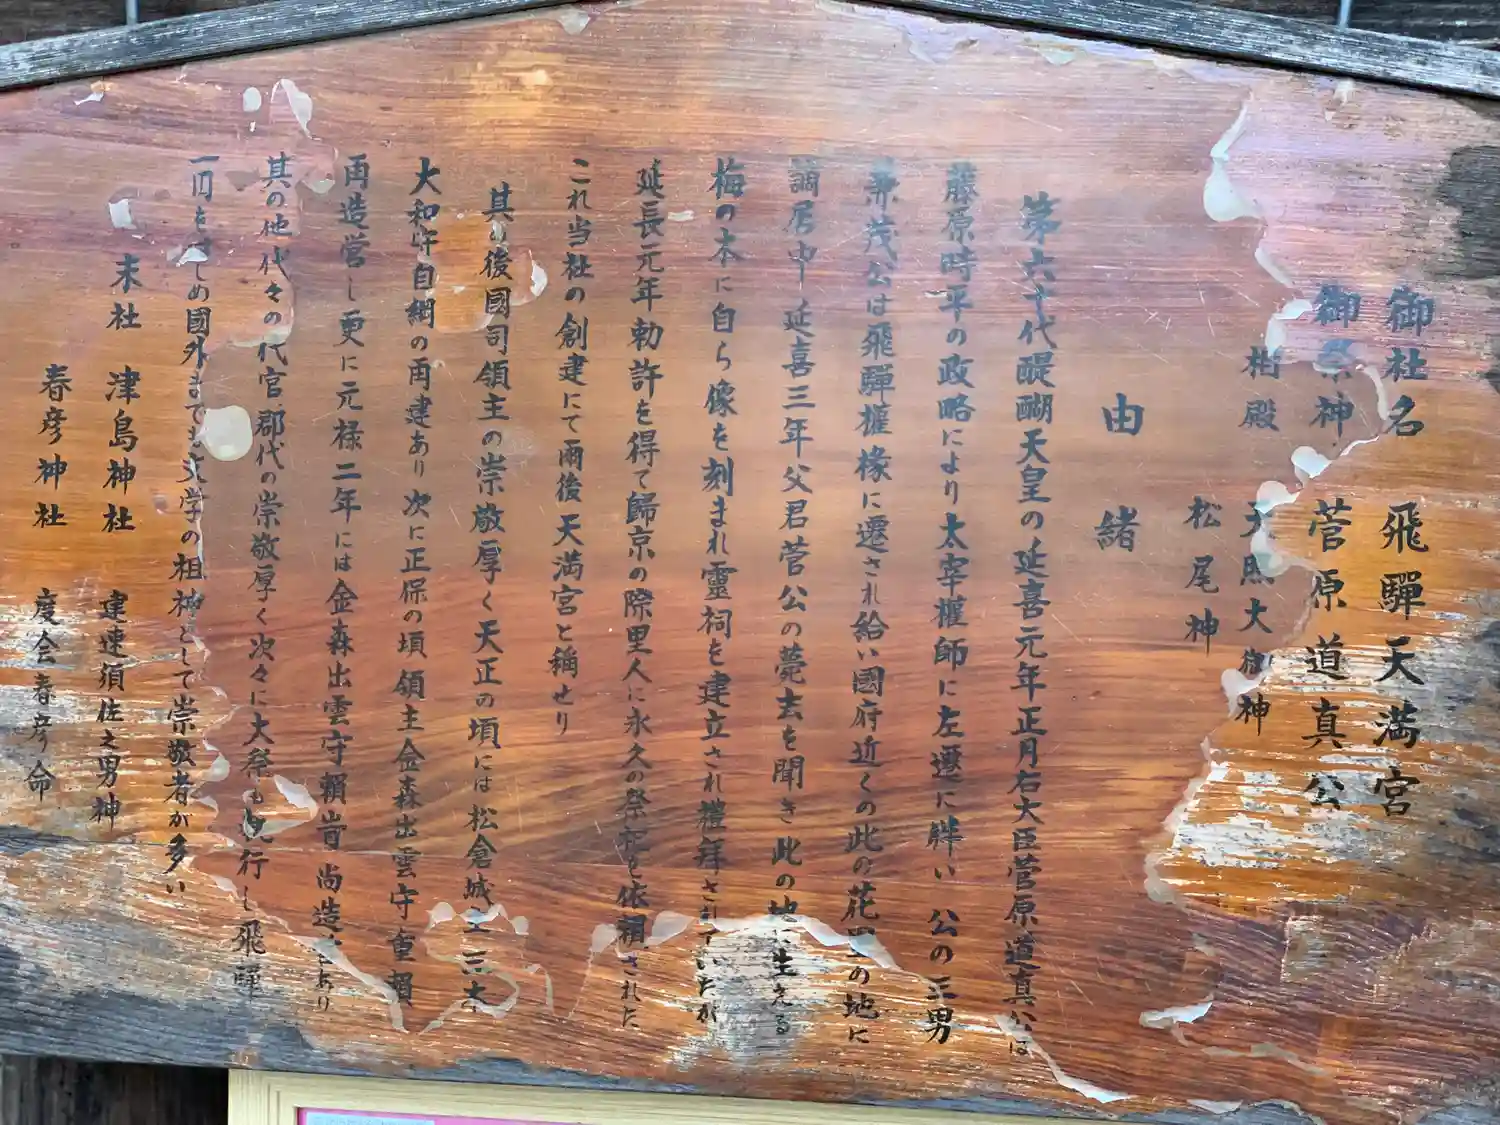 御社名 飛驒天満宮
御祭神 菅原道真公
相殿 天照大御神
松尾神
由緒
第六十代醍醐天皇の延喜元年正月右大臣菅原道真公は
藤原時平の政略により太宰權師に左遷に絆い 公の三男
兼茂公は飛驒權椽に遷され給い國府近くの此の花里の地に
謫居中 延喜三年父君菅公の薨去を聞き 此の地に生える
梅の木に自ら像を刻まれ靈祠を建立され禮拜されていたが
延長元年勅許を得て歸京の際里人に永久の祭祀を依頼された
これ当社の創建にて爾後天満宮と稱せり
其の後國司領主の崇敬厚く天正の頃には松倉城主三木
大和守自綱の再建あり 次に正保の頃 領主金森出雲守重頼
再造営し更に元様二年には金森出雲守頼旹 尚造 あり
其の他代々の代官郡代の崇敬厚く次々に大祭も 行し飛騨
一円をはじめ國外までも文学の祖神として崇敬者が多い
末社 津島神社 建速須佐之男神
春彦神社 度会春彦命